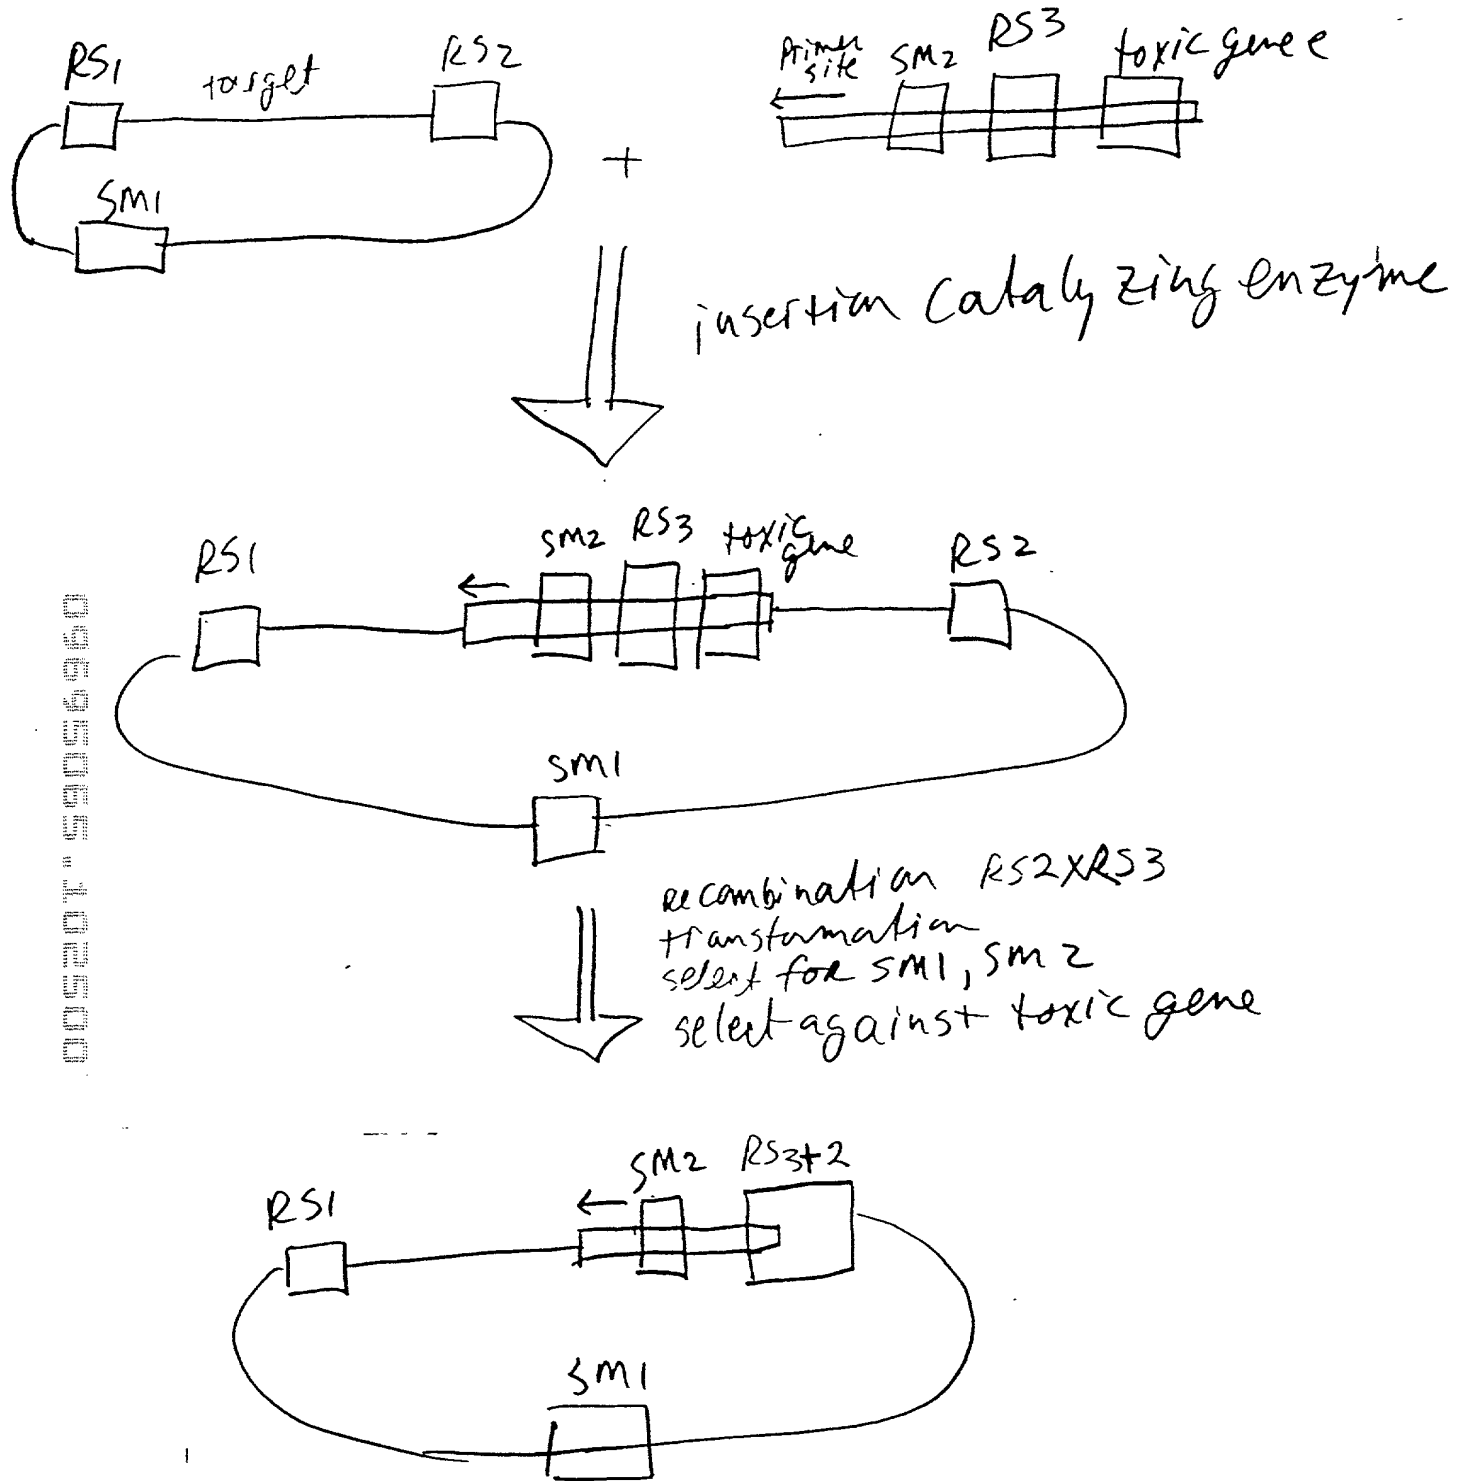 RS1
target
RS2
SM1
+
Primer
site
SM2
RS3
toxic gene e
insertion catalyzing enzyme
RS1
SM2
RS3
toxic
gene
RS2
SM1
recombination RS2XRS3
transformation
select for SM1, SM2
select against toxic gene
RS1
SM2
RS3+2
SM1